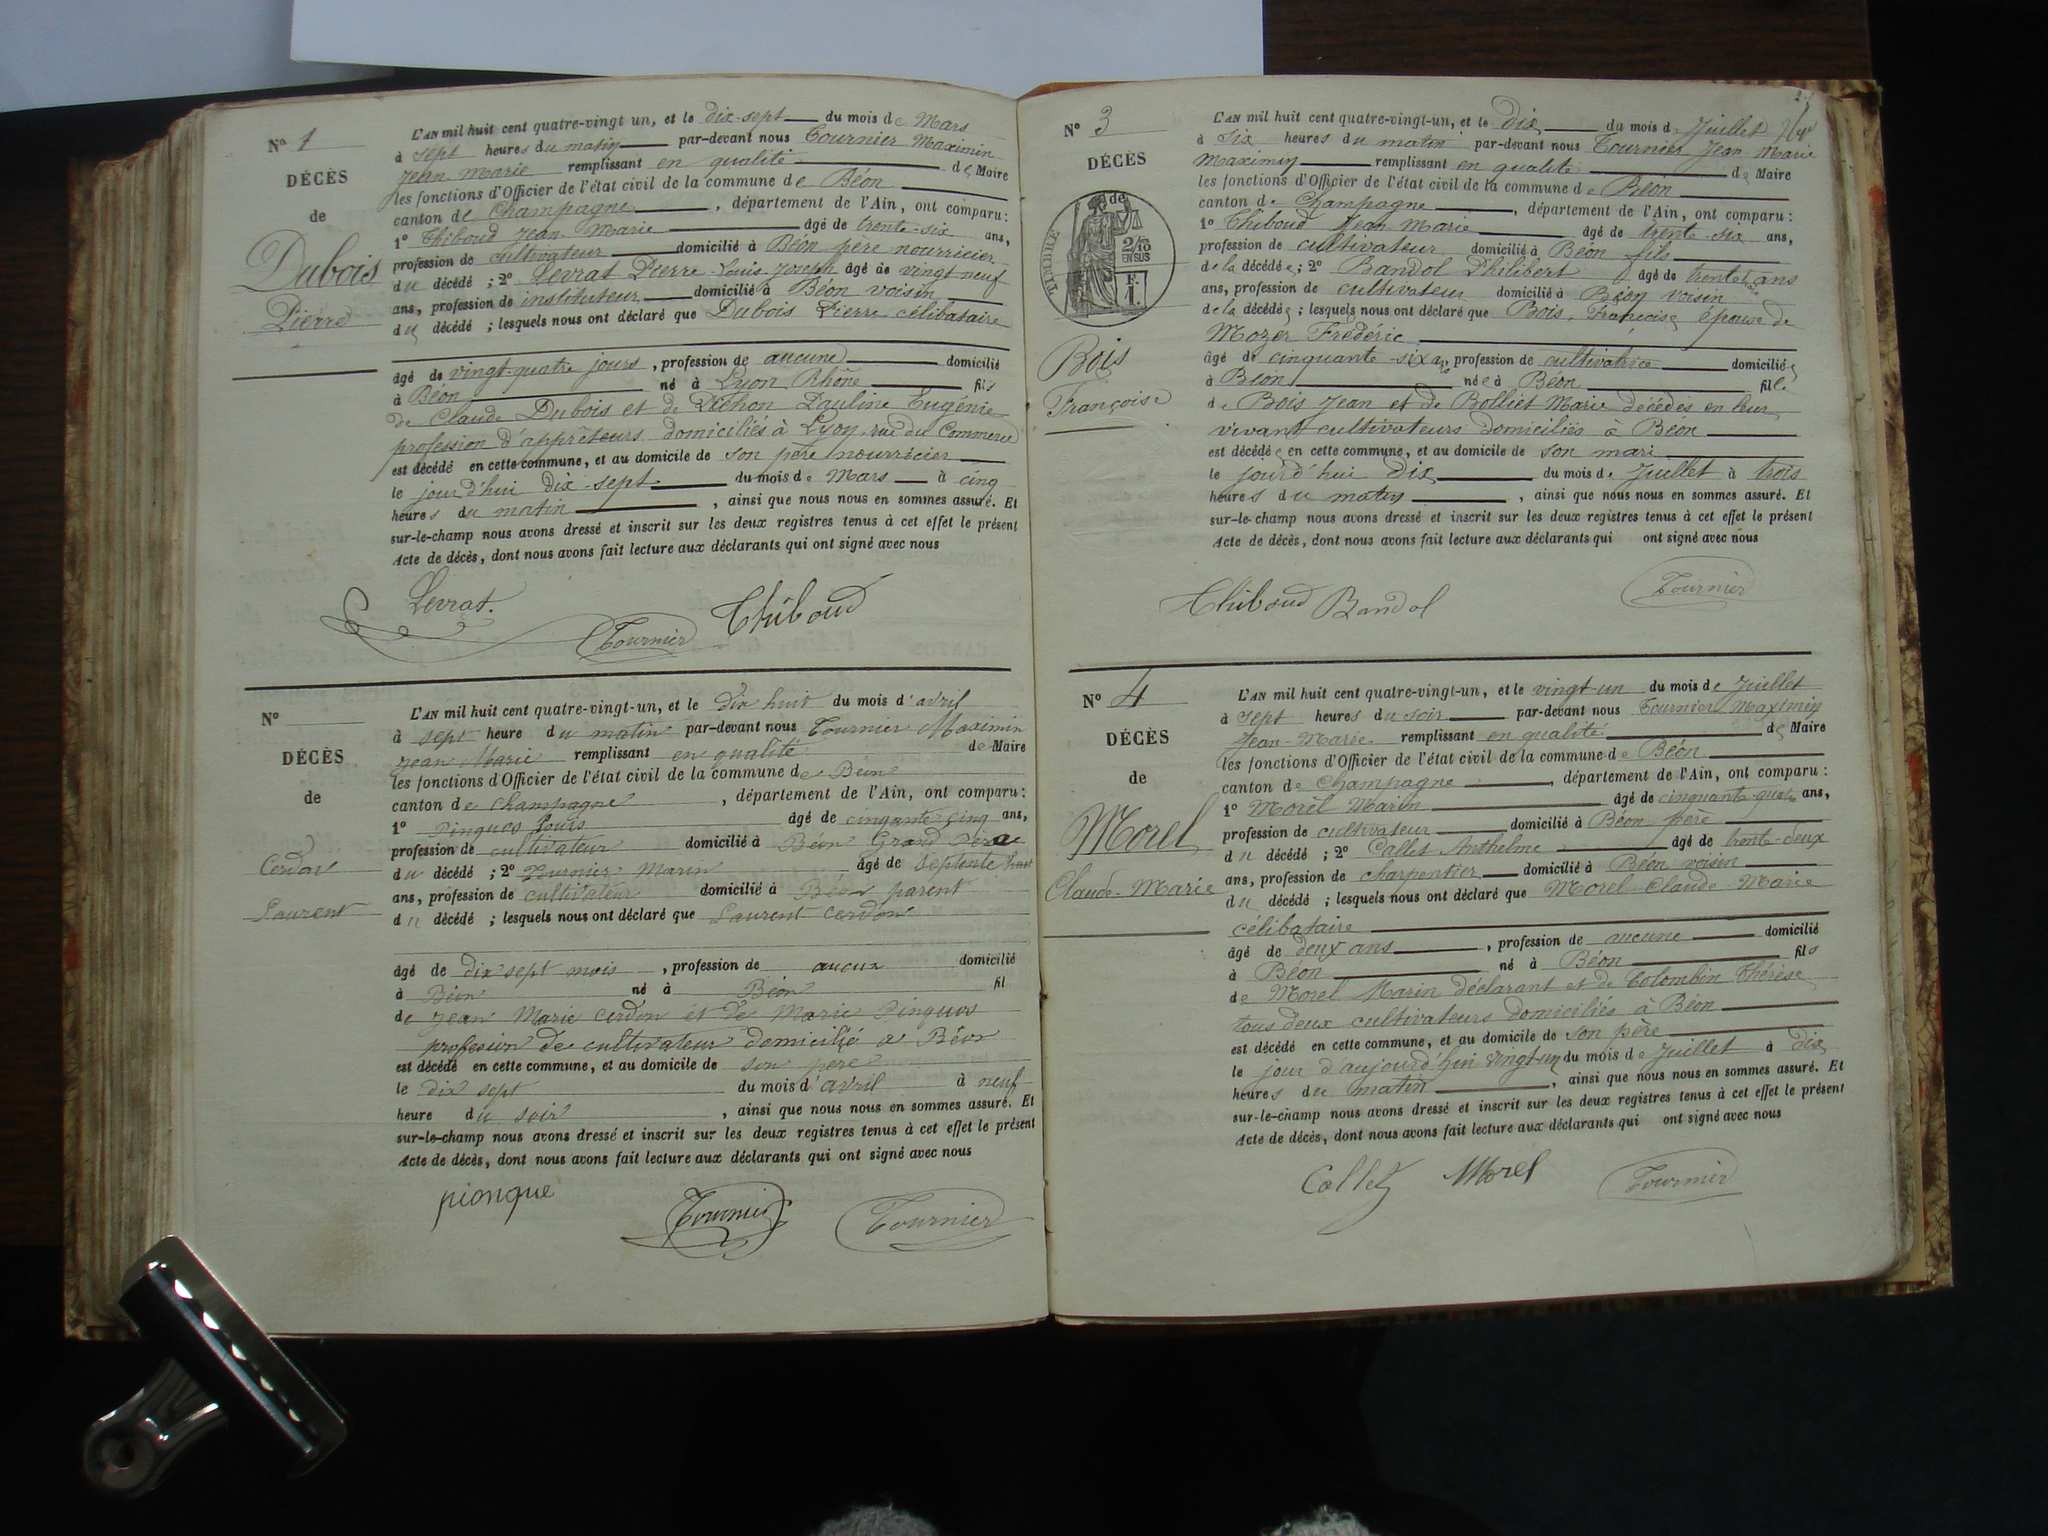 N° 1
DÉCÈS
de
Dubois
Pierre
L'AN mil huit cent quatre-vingt un, et le dix-sept du mois de Mars
à sept heures du matin par-devant nous Tournier Maximin
Jean-Marie remplissant en qualité de Maire
les fonctions d'Officier de l'état civil de la commune de Béon
canton de Champagne, département de l'Ain, ont comparu:
1° Thiboud Jean-Marie âgé de trente-six ans,
profession de cultivateur domicilié à Béon père nourricier
du décédé; 2° Levrat Pierre-Louis-Joseph âgé de vingt neuf
ans, profession de instituteur domicilié à Béon voisin
du décédé; lesquels nous ont déclaré que Dubois Pierre célibataire
âgé de vingt-quatre jours, profession de aucune domicilié
à Béon né à Lyon Rhône fils
de Claude Dubois et de Pauline Eugénie
profession d'apprêteurs domiciliés à Lyon, rue du Commerce
est décédé en cette commune, et au domicile de son père nourricier
le jourd'hui dix-sept du mois de Mars à cinq
heures du matin, ainsi que nous nous en sommes assuré. Et
sur-le-champ nous avons dressé et inscrit sur les deux registres tenus à cet effet le présent
Acte de décès, dont nous avons fait lecture aux déclarants qui ont signé avec nous
Levrat.
Tournier
Thiboud
N°
DÉCÈS
de
Cerdon
Laurent
L'AN mil huit cent quatre-vingt-un, et le dix huit du mois d'avril
à sept heure du matin par-devant nous Tournier Maximin
Jean Marie remplissant en qualité de Maire
les fonctions d'Officier de l'état civil de la commune de Béon
canton de Champagne, département de l'Ain, ont comparu:
1° Pingues Louis âgé de cinqante cinq ans,
profession de cultivateur domicilié à Béon Grand Père
du décédé; 2° Tournier Marin âgé de septente huit
ans, profession de cultivateur domicilié à Béon parent
du décédé; lesquels nous ont déclaré que Laurent Cerdon
âgé de dix sept mois, profession de aucun domicilié
à Béon né à Béon fil
de Jean Marie Cerdon et de Marie Pinguos
profesion de cultivateur domicilié a Béon
est décédé en cette commune, et au domicile de son père
le dix sept du mois d'avril à neuf
heure du soir, ainsi que nous nous en sommes assuré. Et
sur-le-champ nous avons dressé et inscrit sur les deux registres tenus à cet effet le présent
Acte de décès, dont nous avons fait lecture aux déclarants qui ont signé avec nous
pionque
Tournier
Tournier
N° 3
DÉCÈS
de
TIMBRE
2/10
EN SUS
F.
1.
Bois
Françoise
L'AN mil huit cent quatre-vingt-un, et le dix du mois de Juillet
à six heures du matin par-devant nous Tournier Jean-Marie
Maximin remplissant en qualité de Maire
les fonctions d'Officier de l'état civil de la commune de Béon
canton de Champagne, département de l'Ain, ont comparu:
1° Thiboud Jean-Marie âgé de trente-six ans,
profession de cultivateur domicilié à Béon fils
de la décédée; 2° Bandol Philibert âgé de ans
ans, profession de cultivateur domicilié à Béon voisin
de la décédée; lesquels nous ont déclaré que Bois, Françoise épouse de
Mozer Frédéric
âgé de cinquante-six ans, profession de cultivatrice domiciliée
à Béon née à Béon fille.
de Bois Jean et de Bolliet Marie décédés en leur
vivant cultivateurs domiciliés à Béon
est décédée en cette commune, et au domicile de son mari
le jourd'hui dix du mois de Juillet à trois
heures du matin, ainsi que nous nous en sommes assuré. Et
sur-le-champ nous avons dressé et inscrit sur les deux registres tenus à cet effet le présent
Acte de décès, dont nous avons fait lecture aux déclarants qui ont signé avec nous
Thiboud Bandol
Tournier
N° 4
DÉCÈS
de
Morel
Claude-Marie
L'AN mil huit cent quatre-vingt-un, et le vingt-un du mois de Juillet
à sept heures du soir par-devant nous Tournier Maximin
Jean-Marie remplissant en qualité de Maire
les fonctions d'Officier de l'état civil de la commune de Béon
canton de Champagne, département de l'Ain, ont comparu:
1° Morel Marin âgé de cinquante-quatre ans,
profession de cultivateur domicilié à Béon père
du décédé; 2° Callet Anthelme âgé de trente-deux
ans, profession de charpentier domicilié à Béon voisin
du décédé; lesquels nous ont déclaré que Morel Claude-Marie
célibataire
âgé de deux ans, profession de aucune domicilié
à Béon né à Béon fils
de Morel Marin déclarant et de Colombin Thérèse
tous deux cultivateurs domiciliés à Béon
est décédé en cette commune, et au domicile de son père
le jour d'aujourd'hui vingt-un du mois de Juillet à dix
heures du matin, ainsi que nous nous en sommes assuré. Et
sur-le-champ nous avons dressé et inscrit sur les deux registres tenus à cet effet le présent
Acte de décès, dont nous avons fait lecture aux déclarants qui ont signé avec nous
Callet
Morel
Tournier